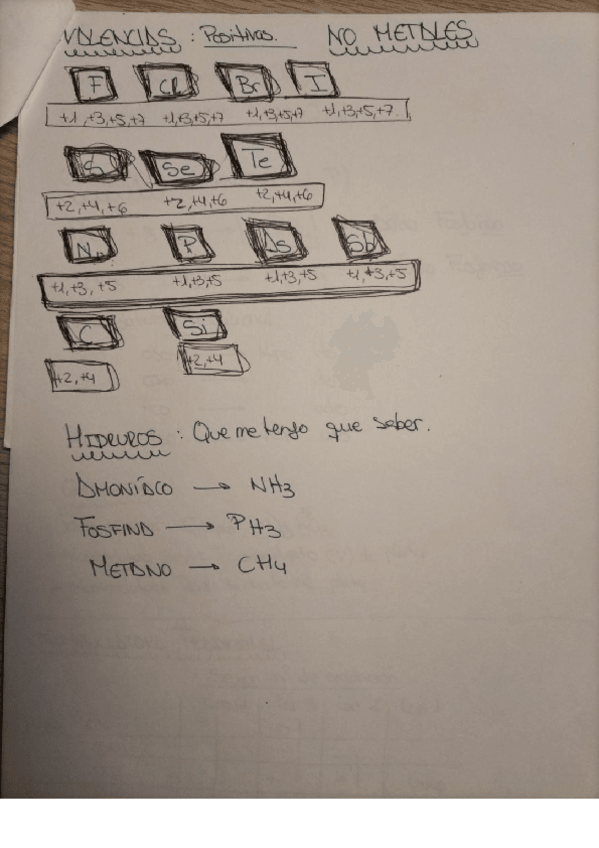 VALENCIAS : Positivas. NO METALES
F Cl Br I
+1,+3,+5,+7 +1,+3,+5,+7 +1,+3,+5,+7 +1,+3,+5,+7.
S Se Te
+2,+4,+6 +2,+4,+6 +2,+4,+6
N P As Sb
+1,+3,+5 +1,+3,+5 +1,+3,+5 +1,+3,+5
C Si
+2,+4 +2,+4
HIDRUROS : Que me tengo que saber.
AMONÍACO → NH3
FOSFINA → PH3
METANO → CH4